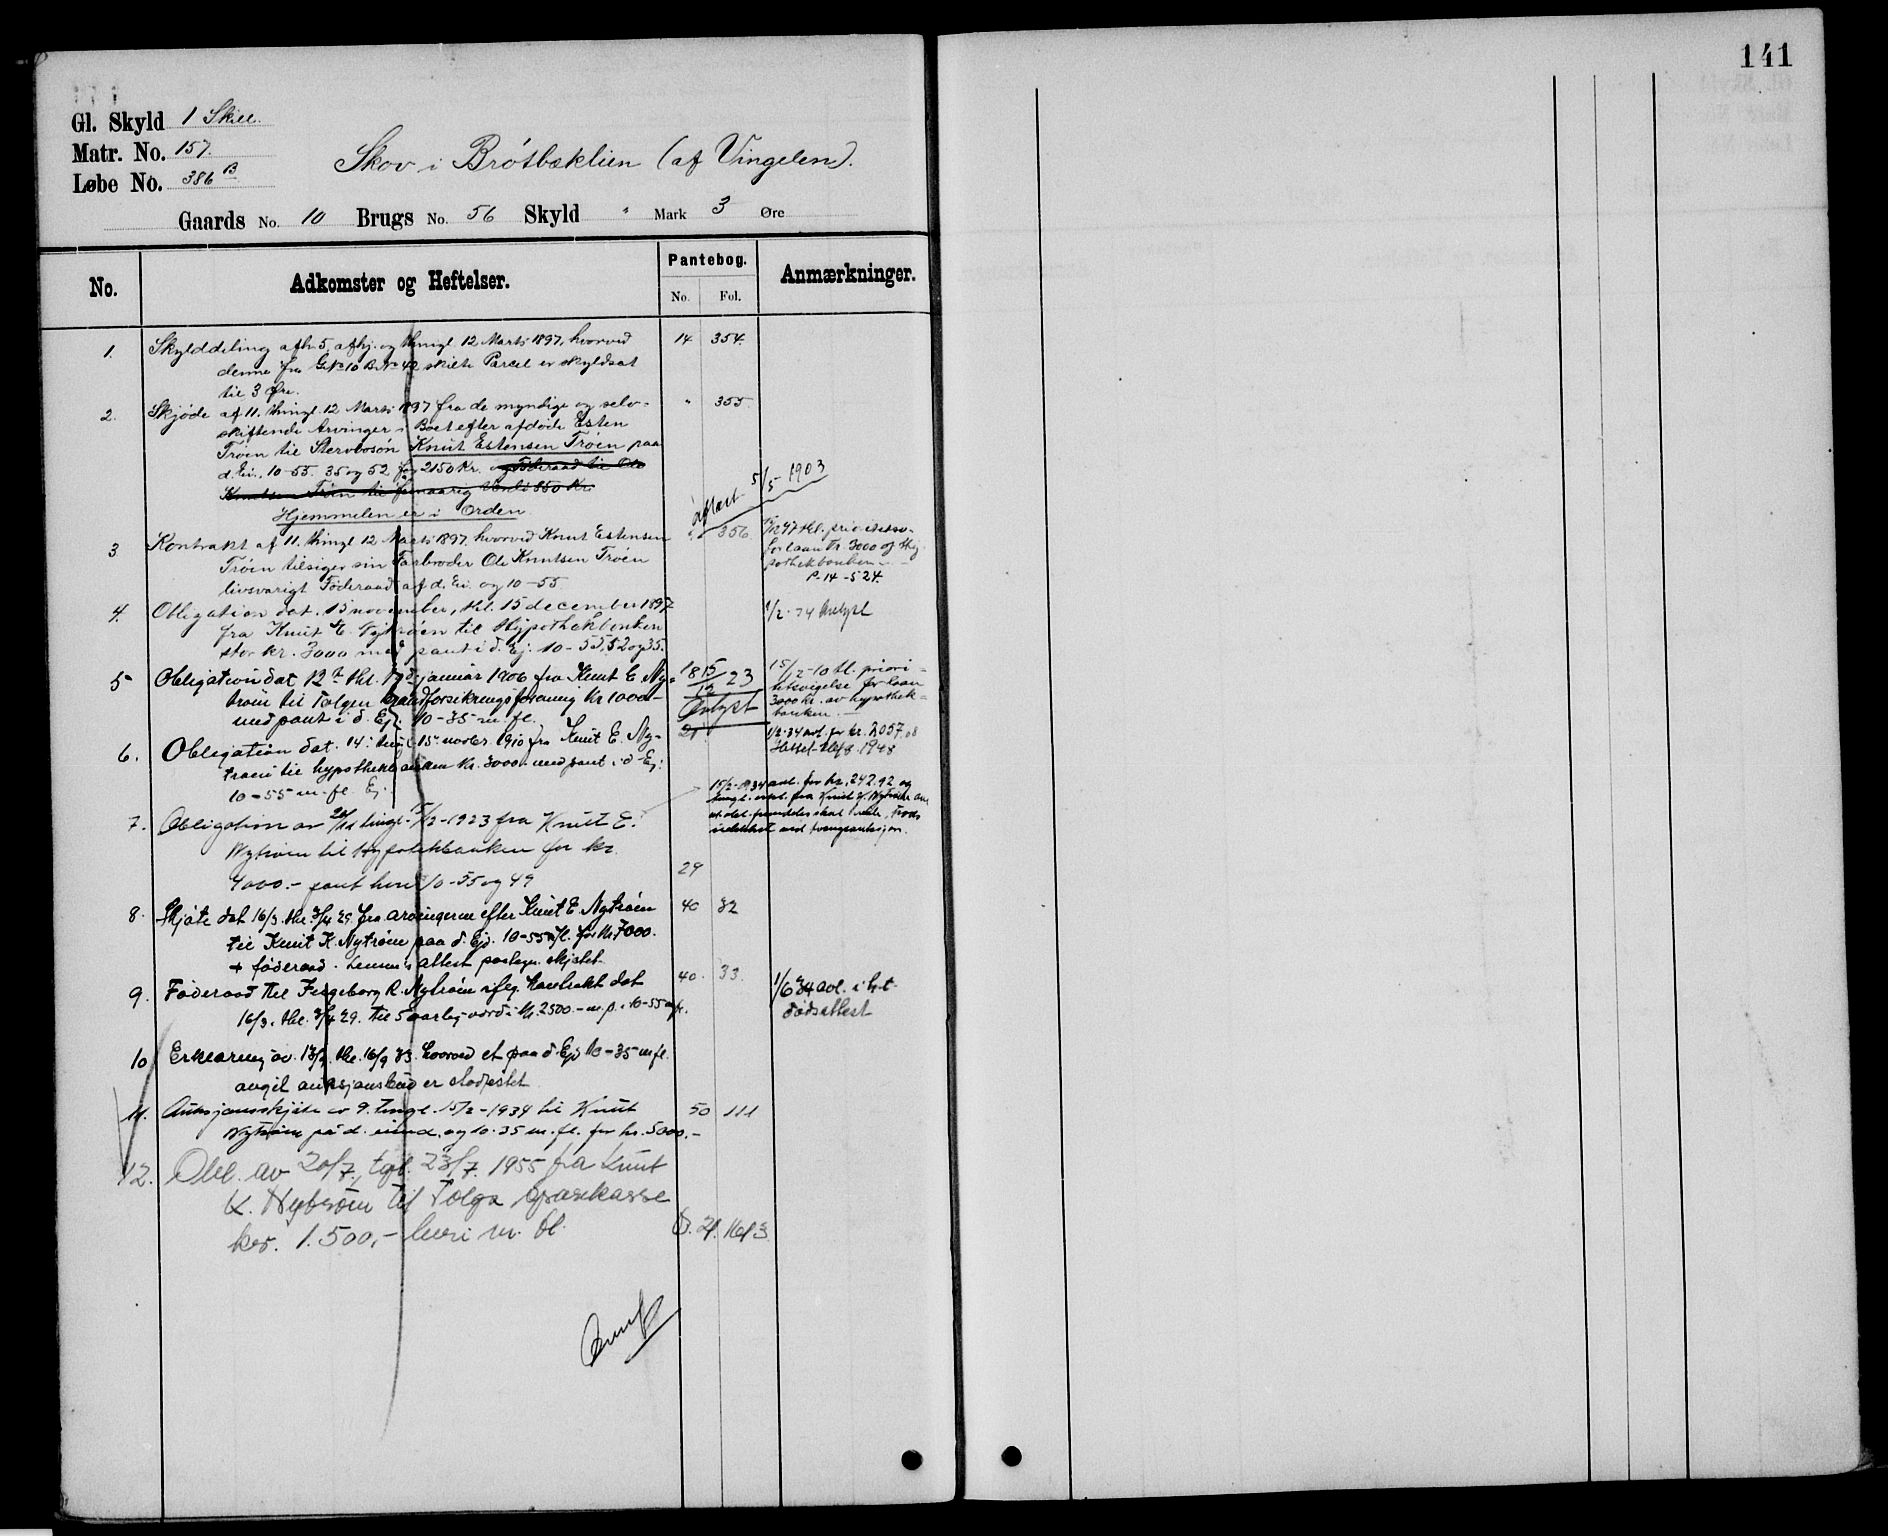 141
Gl. Skyld 1 Skill.
Matr. No. 157.
Løbe No. 386 B
Skov i Brøtbæklien (af Vingelen).
Gaards No. 10 Brugs No. 56 Skyld " Mark 3 Øre
No. Adkomster og Heftelser. Pantebog. No. Fol. Anmærkninger.
1. Skylddeling afh. 5, afhj. og thingl 12 Marts 1897, hvorved 14 354.
denne fra GNo 10 BNo 42 skilte Parcel er skyldsat
til 3 Øre.
2. Skjøde af 11. thingl. 12 Marts 1897 fra de myndige og selv- " 355
skiftende Arvinger i Boet efter afdøde Esten
Trøen til Stervbosøn Knut Estensen Trøen paa
d. Ei., 10-55. 35 og 52 for 2150 Kr. og Föderaad til Ole
Knutsen Trøen til femaarig Værdi 850 Kr.
Hjemmelen er i Orden
Aflæst 5/5 1903
3 Kontrakt af 11. thingl 12 Marts 1897, hvorved Knut Estensen " 356.
Trøen tilsiger sin Farbroder Ole Knutsen Trøen
livsvarigt Føderaad af d. Ei. og 10-55
for laan kr. 3000 af Hy-
pothekbanken
P-14-524.
4. Obligation dat. 13 november, thl. 15 december 1897
fra Knut E. Nytrøen til Hypothekbanken
stor kr. 3000 med pant i d. Ej. 10-55, 52 og 35.
1/2-34 Avlyst
5 Obligation dat 12. thl. 17 januar 1906 fra Knut E Ny- 18 23
trøen til Tolgen brandforsikringsforening kr 1000-
med pant i d. Ej. 10-35 m. fl.
15/12 Avlyst
15/12-10 tl. priori-
tetsvigelse for laan
3000 kr. av hypothek-
banken.
6. Obligation dat. 14. thingl. 15 novbr. 1910 fra Knut E. Ny- 21
trøen til hypothekbanken kr. 3000.- med pant i d Ej:
10-55 m. fl. Ej.
1/2-34 avl. for kr. 2057.08
7. Obligation av tingl. 1/12-1923 fra Knut E.
Nytrøen til Hypotekbanken for kr. 29
4000.- pant heri 10-55 og 49
15/2-1934 avl. for kr. 242.92 og
8. Skjøte dat 16/3. thl. 3/4 29 fra arvingerne efter Knut E. Nytrøen 40 32
til Knut K. Nytrøen paa d. Ejd. 10-55 m/fl. for kr. 7000.
+ føderaad. Lensm's attest paategn. skjøtet
9. Føderaad til Ingeborg R. Nytrøen ifлg. kontrakt dat 40. 33.
16/3, thl. 3/4 29. til 5 aarlig værdi kr. 2500.- m. p. i 10-55 m fl.
1/6 34 avl. i h. t.
dødsattest
10 Erklæring av. 13/9. thl. 16/9 33. hvorved et paa d. Ejd 10-35 m fl.
avgit auksjonsbud er stadfestet
11. Auksjonsskjøte av 9. tingl. 15/2-1934 til Knut 50 111
Nytrøen på d. eiend. og 10-35 m. fl. for kr. 5000.-
12. Obl. av 20/7, tgl. 23/7. 1955 fra Knut
K. Nytrøen til Tolga sparekasse
kr. 1.500,- heri m. fl.